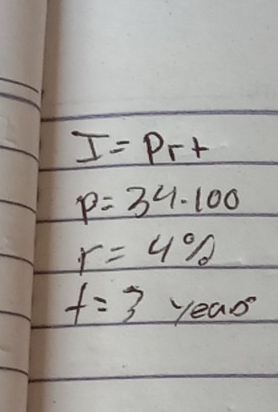 I = Prt
p = 34.100
r = 4%
t = 3 years